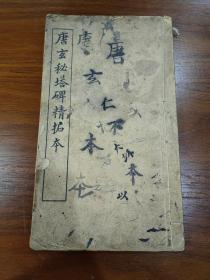 唐玄秘塔碑精拓本
唐
本
本
唐
玄
仁
不
本
以